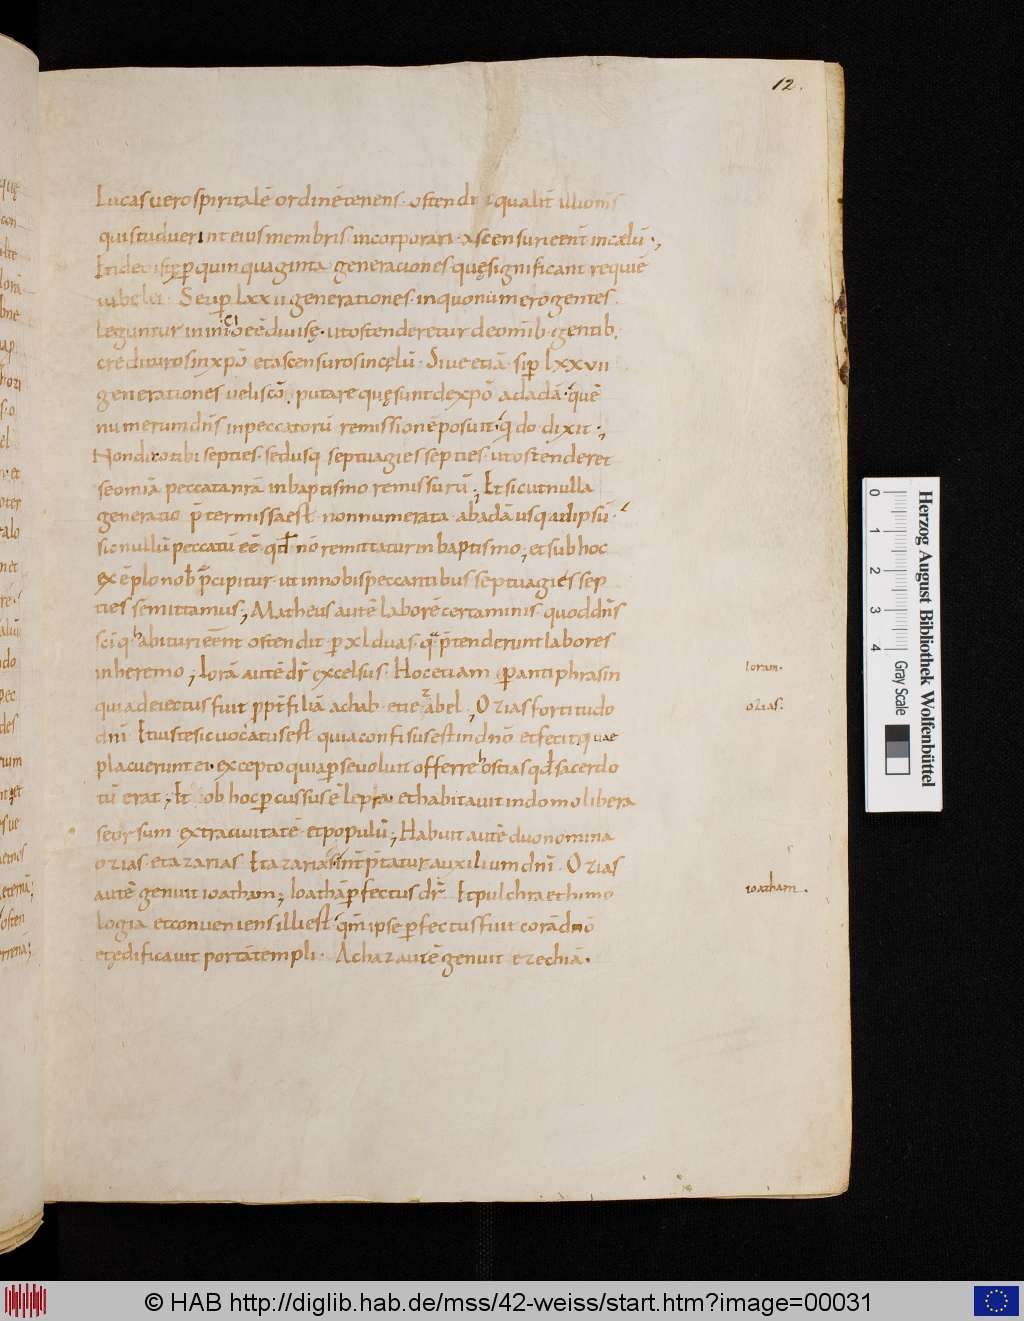 12.
Lucas uero spiritalē ordinē tenens · ostendit qualit illi om̄s
qui studuerint eius membris incorporari · ascensuri eēnt in cælū ·,
Et ideo iste p quinquaginta generaciones · quę significant requiē
Seu p lxxii generationes · in quo numero gentes
leguntur in initio eē diuisę · ut ostenderetur de omīb · gentib,
credituros in xpō et ascensuros in cęlū · Siue etiā · sip lxxvii
generationes uel iscō putare quę sunt de xpō ad adā · quē
numerum dn̄s in peccatorū remissionē posuit · qđo dixit ·,
Non dico tibi septies · sed usq septuagies septies · ut ostenderet
se omīa peccata nr̄a in baptismo remissurū ; Et sicut nulla
generatio p̄termissa est non numerata ab adā usq ad ipsū ·
sic nullū peccatū eē qđ nō remittatur in baptismo ; et sub hoc
exēplo nob p̄cipitur · ut in nobis peccantibus septuagies sep
ties remittamus ; Matheus autē laborē certaminis · quod dn̄s
sc̄i q habituri eēnt ostendit · p xl duas · q p̄tenderunt labores
in heremo ; Iorā autē dr̄ excelsus · Hoc etiam p antiphrasin
qui a deiectus fuit ppt filiā achab · et iezabel ; Ozias fortitudo
dn̄i Et iuste sic uocatus est quia confisus est in dn̄o et fecit q uae
placuerunt ei · excepto quia p se uoluit offerre hostias qđ sacerdo
tū erat ; Et ob hoc percussus ē lepra · et habitauit in domo libera
seorsum extra ciuitatē et populū ; Habuit autē duo nomina
ozias · et azarias Et azarias int̄p̄tatur auxilium dn̄i · Ozias
autē genuit ioatham ; Ioathā p fectus dr̄ Et pulchra ethimo
logia et conueniens illi est · qm̄ ipse p fectus fuit corā dn̄o
et ędificauit portā templi · Achaz autē genuit ezechiā ·
Ioram ·
ozias :
ioatham ·
Herzog August Bibliothek Wolfenbüttel
0 1 2 3 4
Gray Scale
© HAB http://diglib.hab.de/mss/42-weiss/start.htm?image=00031